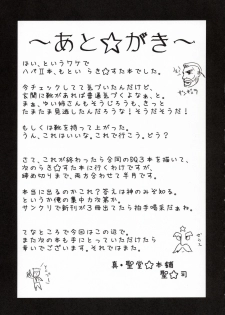 ～あと☆がき～
はい、というワケで
ハパⅡ本、もとい らき☆すた本でした。
今チェックしてて気づいたんだけど、
玄関に靴があれば普通気づくよなぁ、と。
まぁ、ゆい姉さんもそうじろうも、きっと
たまたま見逃したんだろうな！そうだそうだ！
もしくは靴を持って上がった。
うん、これはいいな。これで行こう。どう？
さて、これが終わったら合同のDQ3本を描いて、
次のらき☆すた本に行くわけですが、
締め切りまで、両方合わせて半月です。
本当に出るのかこれ？答えは神のみぞ知る。
というか俺の集中力次第か。
サンクリで新刊が3冊出てたら拍手喝采だぁね。
てなところで今回はこの辺で。
また次の本も手にとっていただけたら
幸いでございます。それではまた。
真・聖堂☆本舗
聖☆司